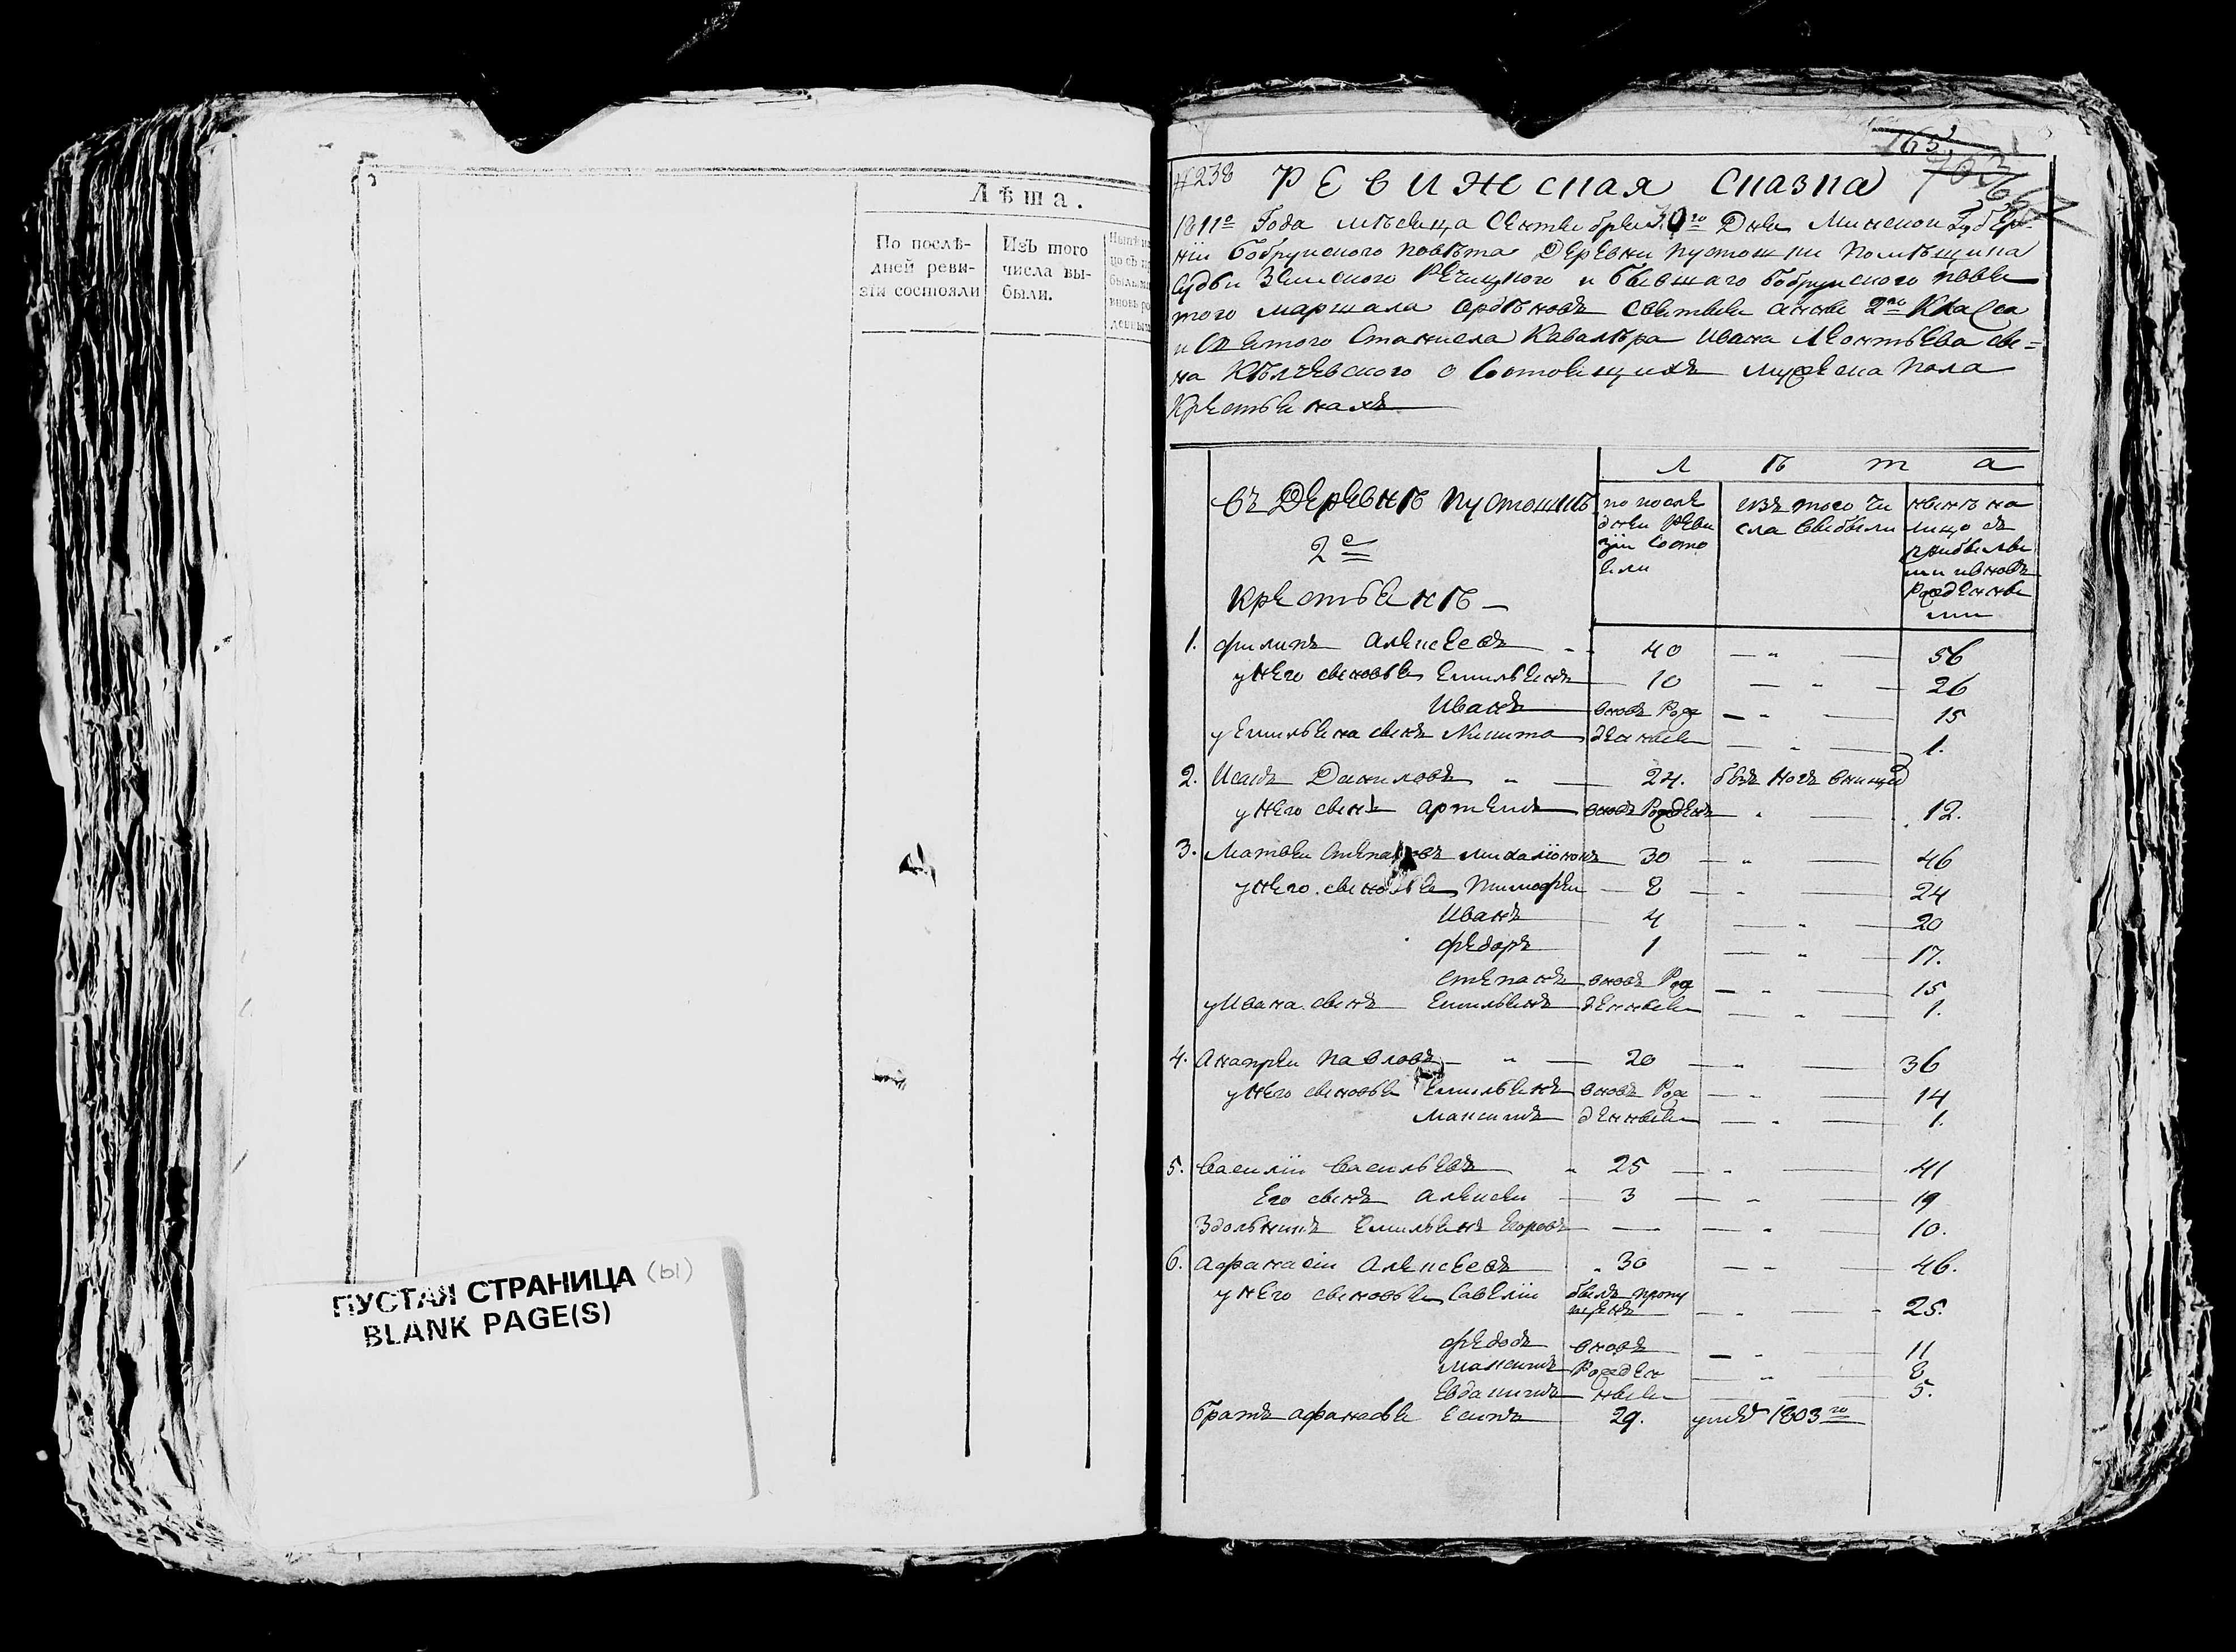 Лѣта.
По послѣ-
дней реви-
зіи состояли
Изъ того
числа вы-
были.
ПУСТАЯ СТРАНИЦА (Ы)
BLANK PAGE(S)
165
№238 Ревижская сказка
1811го Года мѣсяца Сентября 30го Дня Минской Губер-
ніи Бобруйского повѣта Деревни Пустошки Помѣщика
Судьи Земского Речицкого и бывшаго Бобруйского пове
того маршала ордѣновъ святыя анны 2го Класса
и Святого Станисла Кавалѣра Ивана Леонтьева сы=
на Кѣлчевского о Состоящихъ мужеска пола
Крестьянахъ
Л ѣ т а
Въ Деревнѣ Пустошкѣ
2е
крестьянѣ
по после
дней Реви
зіи Состо
яли
изъ того чи
сла выбыли
нынѣ на
лицо съ
прибылы
ми и вновь
Рожденны
ми
1. филипъ Алексеевъ 40 56
у него сыновья Емильянъ 10 26
Иванъ вновь Рож 15
у Емильяна сынъ Никита денныя 1.
2. Исакъ Даниловъ 24.
у него сынъ Артемъ вновь Рожденъ 12.
3. Матвей Степановъ 30 46
у него сыновья Тимофей 8 24
Иванъ 4 20
федоръ 1 17.
степанъ вновь Рож 15
у Ивана сынъ Емильянъ денныя 1.
4. Андрей Павловъ 20 36
у него сыновья Емильянъ вновь Рож 14
Максимъ денныя 1.
5. Василіи Васильевъ 25 41
Его сынъ Алексей 3 19
Здольникъ Емильянъ Егоровъ 10.
6. Афанасіи Алексеевъ 30 46.
у него сыновья Савеліи былъ пропу
щенъ 25.
федоръ вновь 11
Максимъ Рожден 8
Евдакимъ ныя 5.
братъ афанасья Есипъ 29. умеръ 1803го